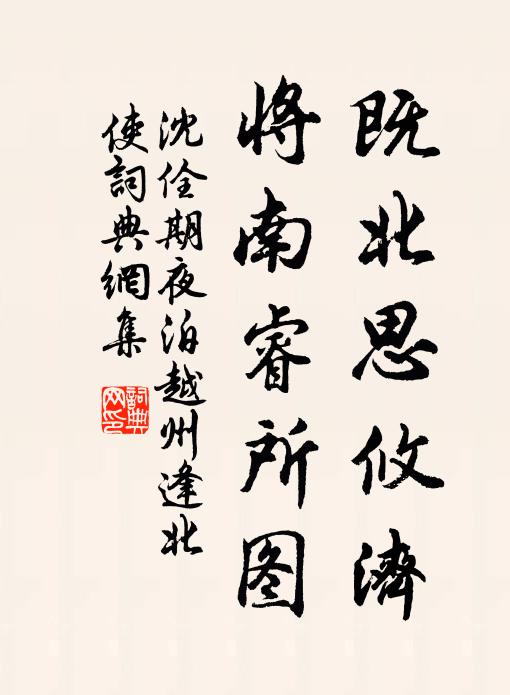 既北思攸濟
將南睿所图
沈佺期夜泊越州逢北
使詞典網集
詞典
网印